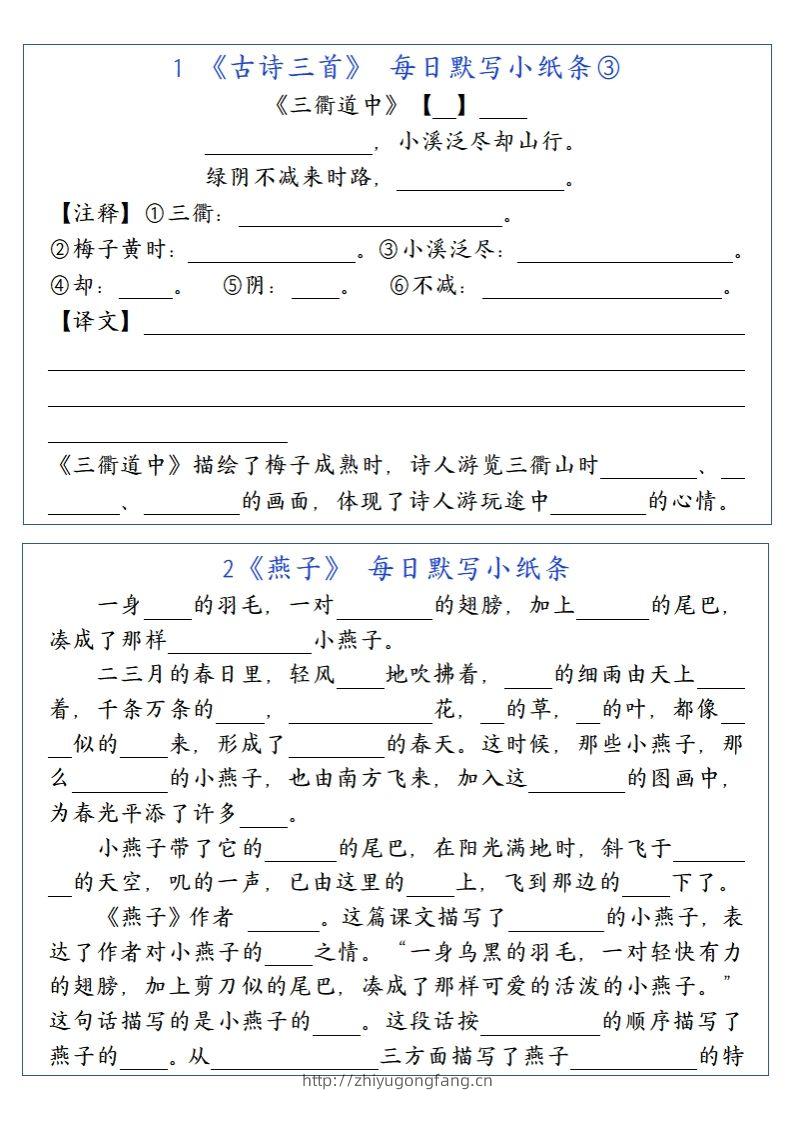 1 《古诗三首》 每日默写小纸条③
《三衢道中》【__】____
______________，小溪泛尽却山行。
绿阴不减来时路，______________。
【注释】①三衢：______________________。
②梅子黄时：______________。③小溪泛尽：__________________。
④却：____。 ⑤阴：____。 ⑥不减：____________________。
【译文】__________________________________________________
__________________________________________________________
__________________________________________________________
____________________
《三衢道中》描绘了梅子成熟时，诗人游览三衢山时________、__
______、________的画面，体现了诗人游玩途中________的心情。
2《燕子》 每日默写小纸条
一身____的羽毛，一对________的翅膀，加上______的尾巴，
凑成了那样____________小燕子。
二三月的春日里，轻风____地吹拂着，____的细雨由天上____
着，千条万条的____，____________花，__的草，__的叶，都像__
__似的____来，形成了________的春天。这时候，那些小燕子，那
么________的小燕子，也由南方飞来，加入这________的图画中，
为春光平添了许多____。
小燕子带了它的______的尾巴，在阳光满地时，斜飞于______
__的天空，叽的一声，已由这里的____上，飞到那边的____下了。
《燕子》作者 ______。这篇课文描写了________的小燕子，表
达了作者对小燕子的____之情。“一身乌黑的羽毛，一对轻快有力
的翅膀，加上剪刀似的尾巴，凑成了那样可爱的活泼的小燕子。”
这句话描写的是小燕子的____。这段话按__________的顺序描写了
燕子的____。从______________三方面描写了燕子__________的特
http://zhiyugongfang.cn